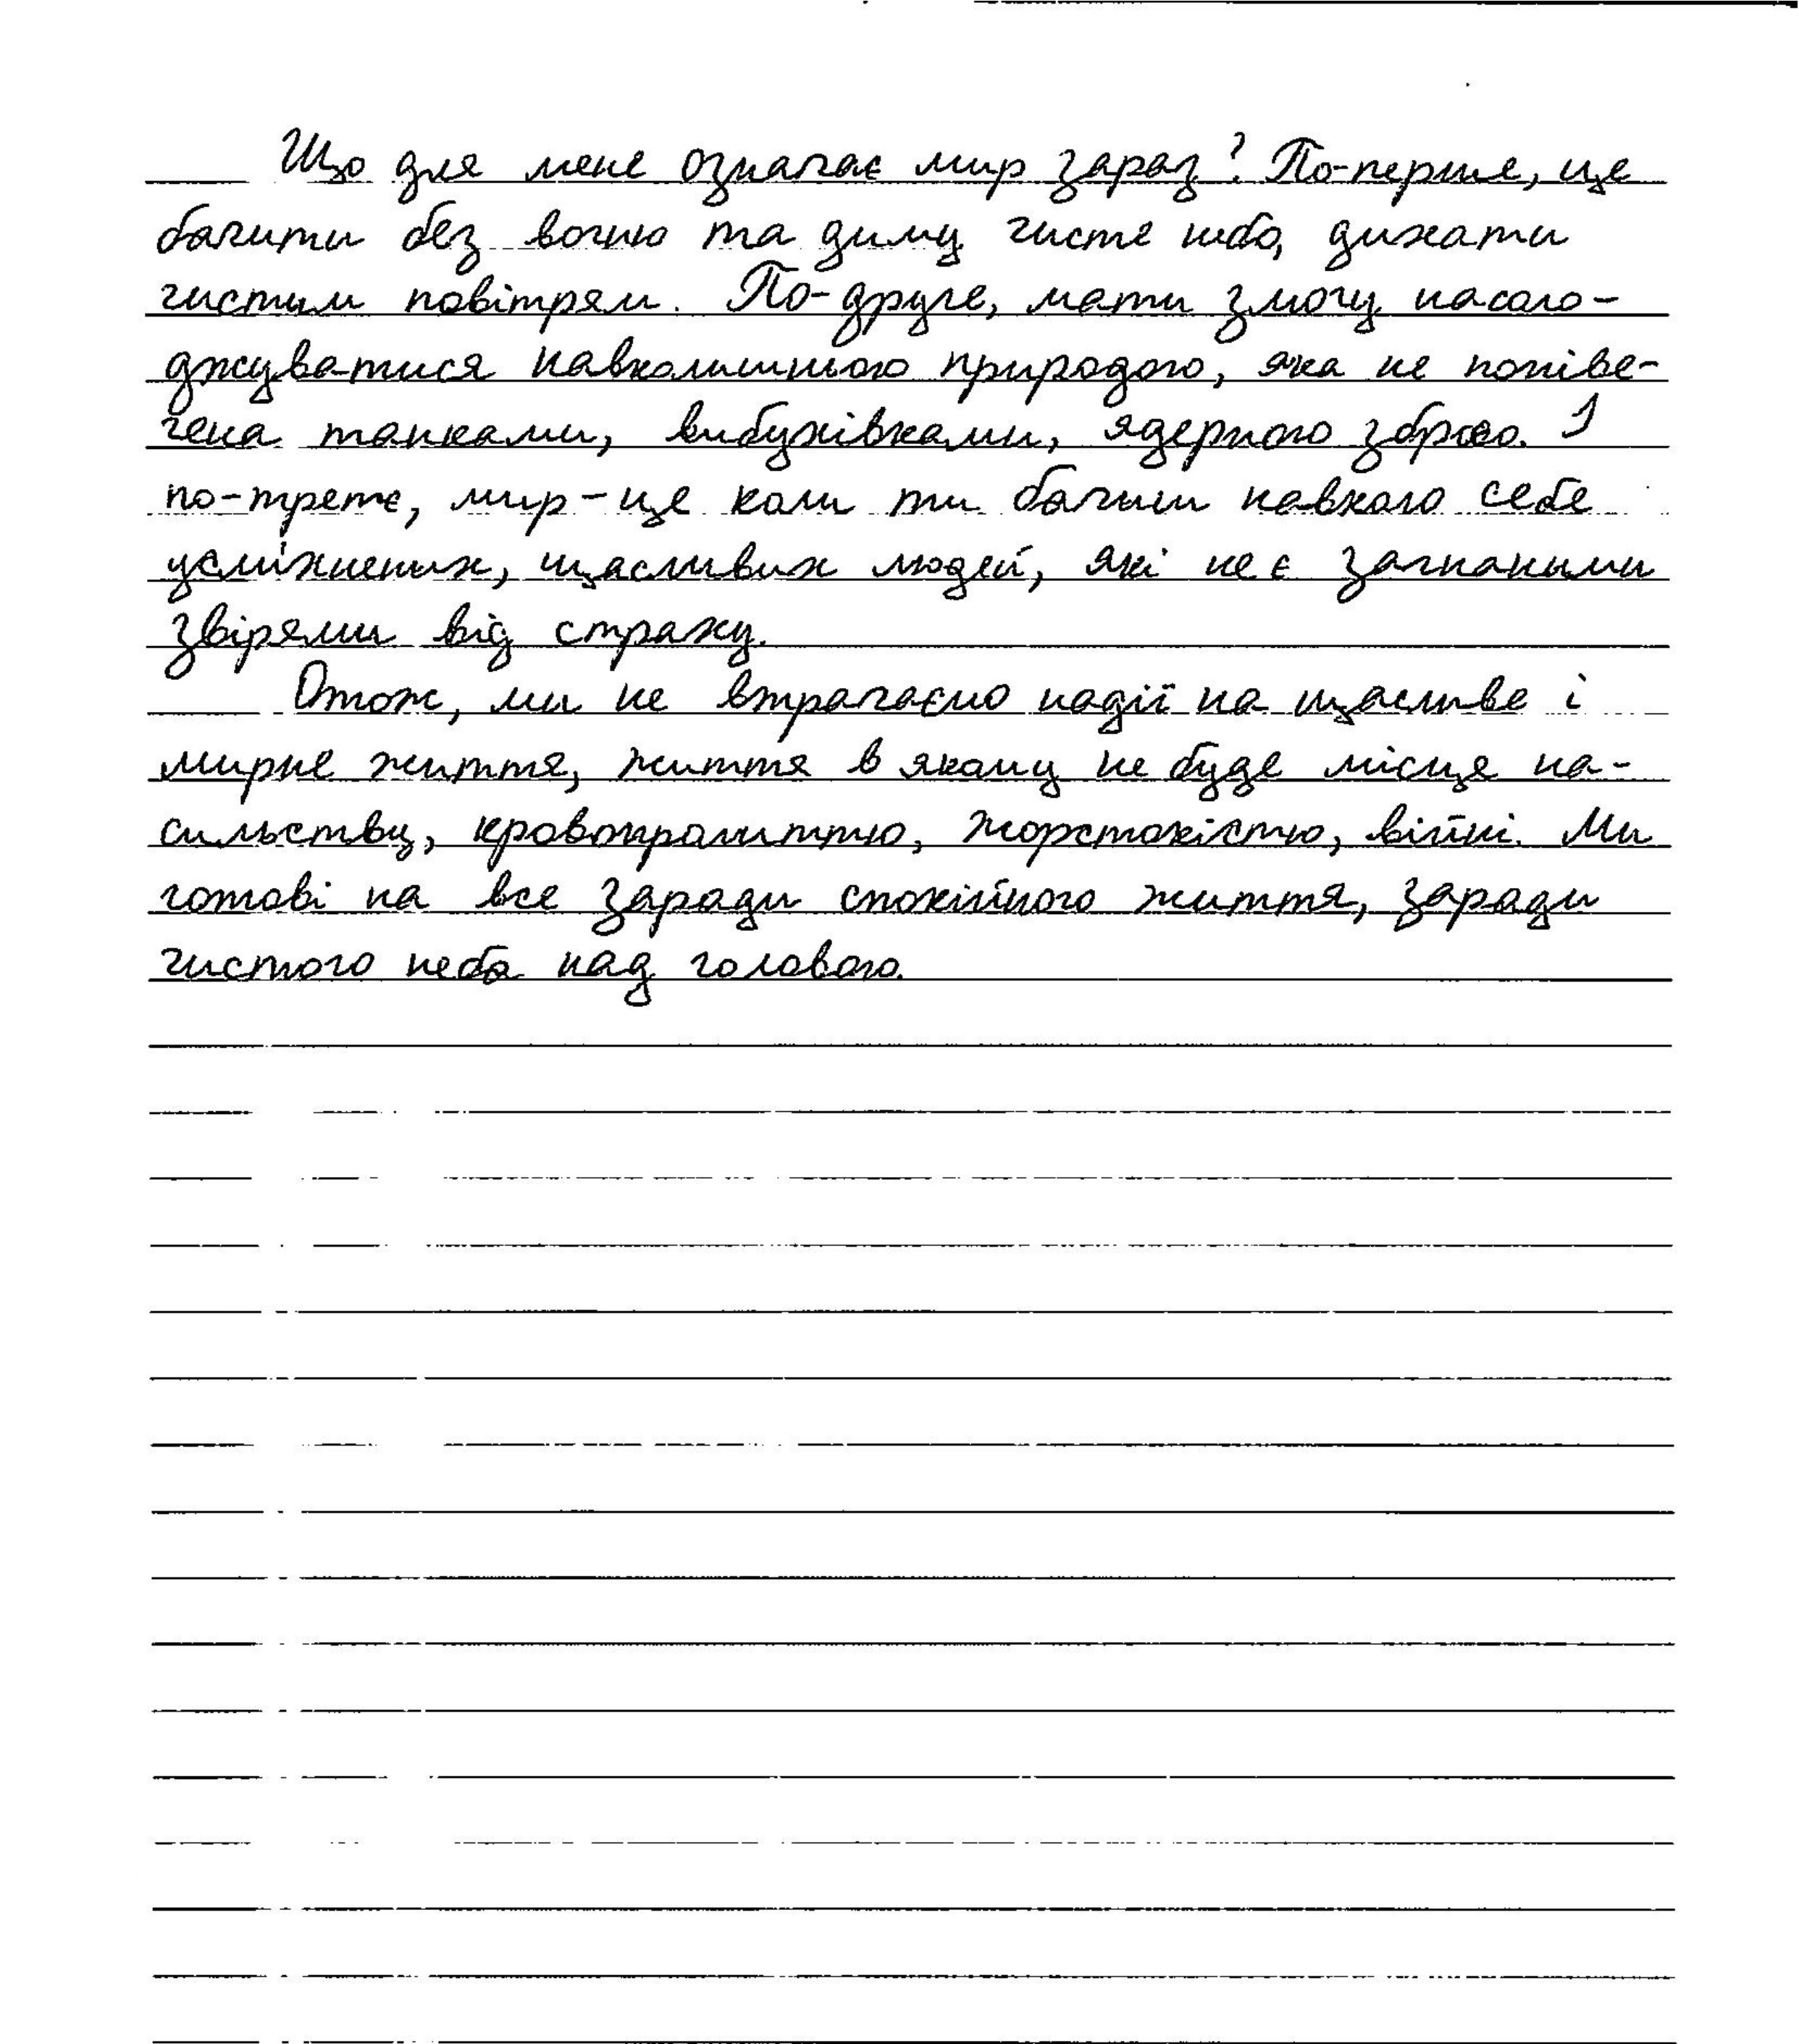 Що для мене означає мир зараз? По-перше, це
бачити без вогню та диму чисте небо, дихати
чистим повітрям. По-друге, мати змогу насоло-
джуватися навколишньою природою, яка не понівe-
чена танками, вибухівками, ядерною зброєю. І
по-третє, мир - це коли ти бачиш навколо себе
усміхнених, щасливих людей, які не є загнаними
звірями від страху.
Отож, ми не втрачаємо надії на щасливе і
мирне життя, життя в якому не буде місце на-
сильству, кровопролиттю, жорстокістю, війні. Ми
готові на все заради спокійного життя, заради
чистого неба над головою.